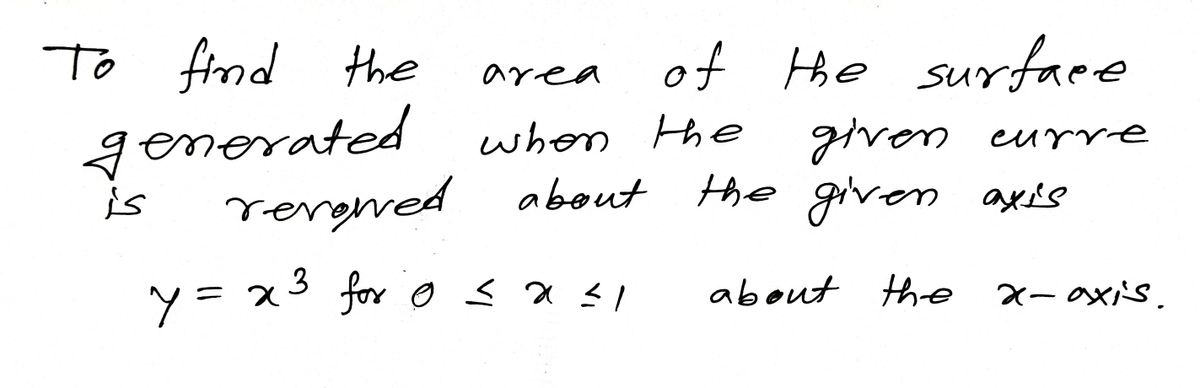 To find the area of the surface
generated when the given curve
is revolved about the given axis
y = x³ for 0 ≤ x ≤ 1 about the x-axis.